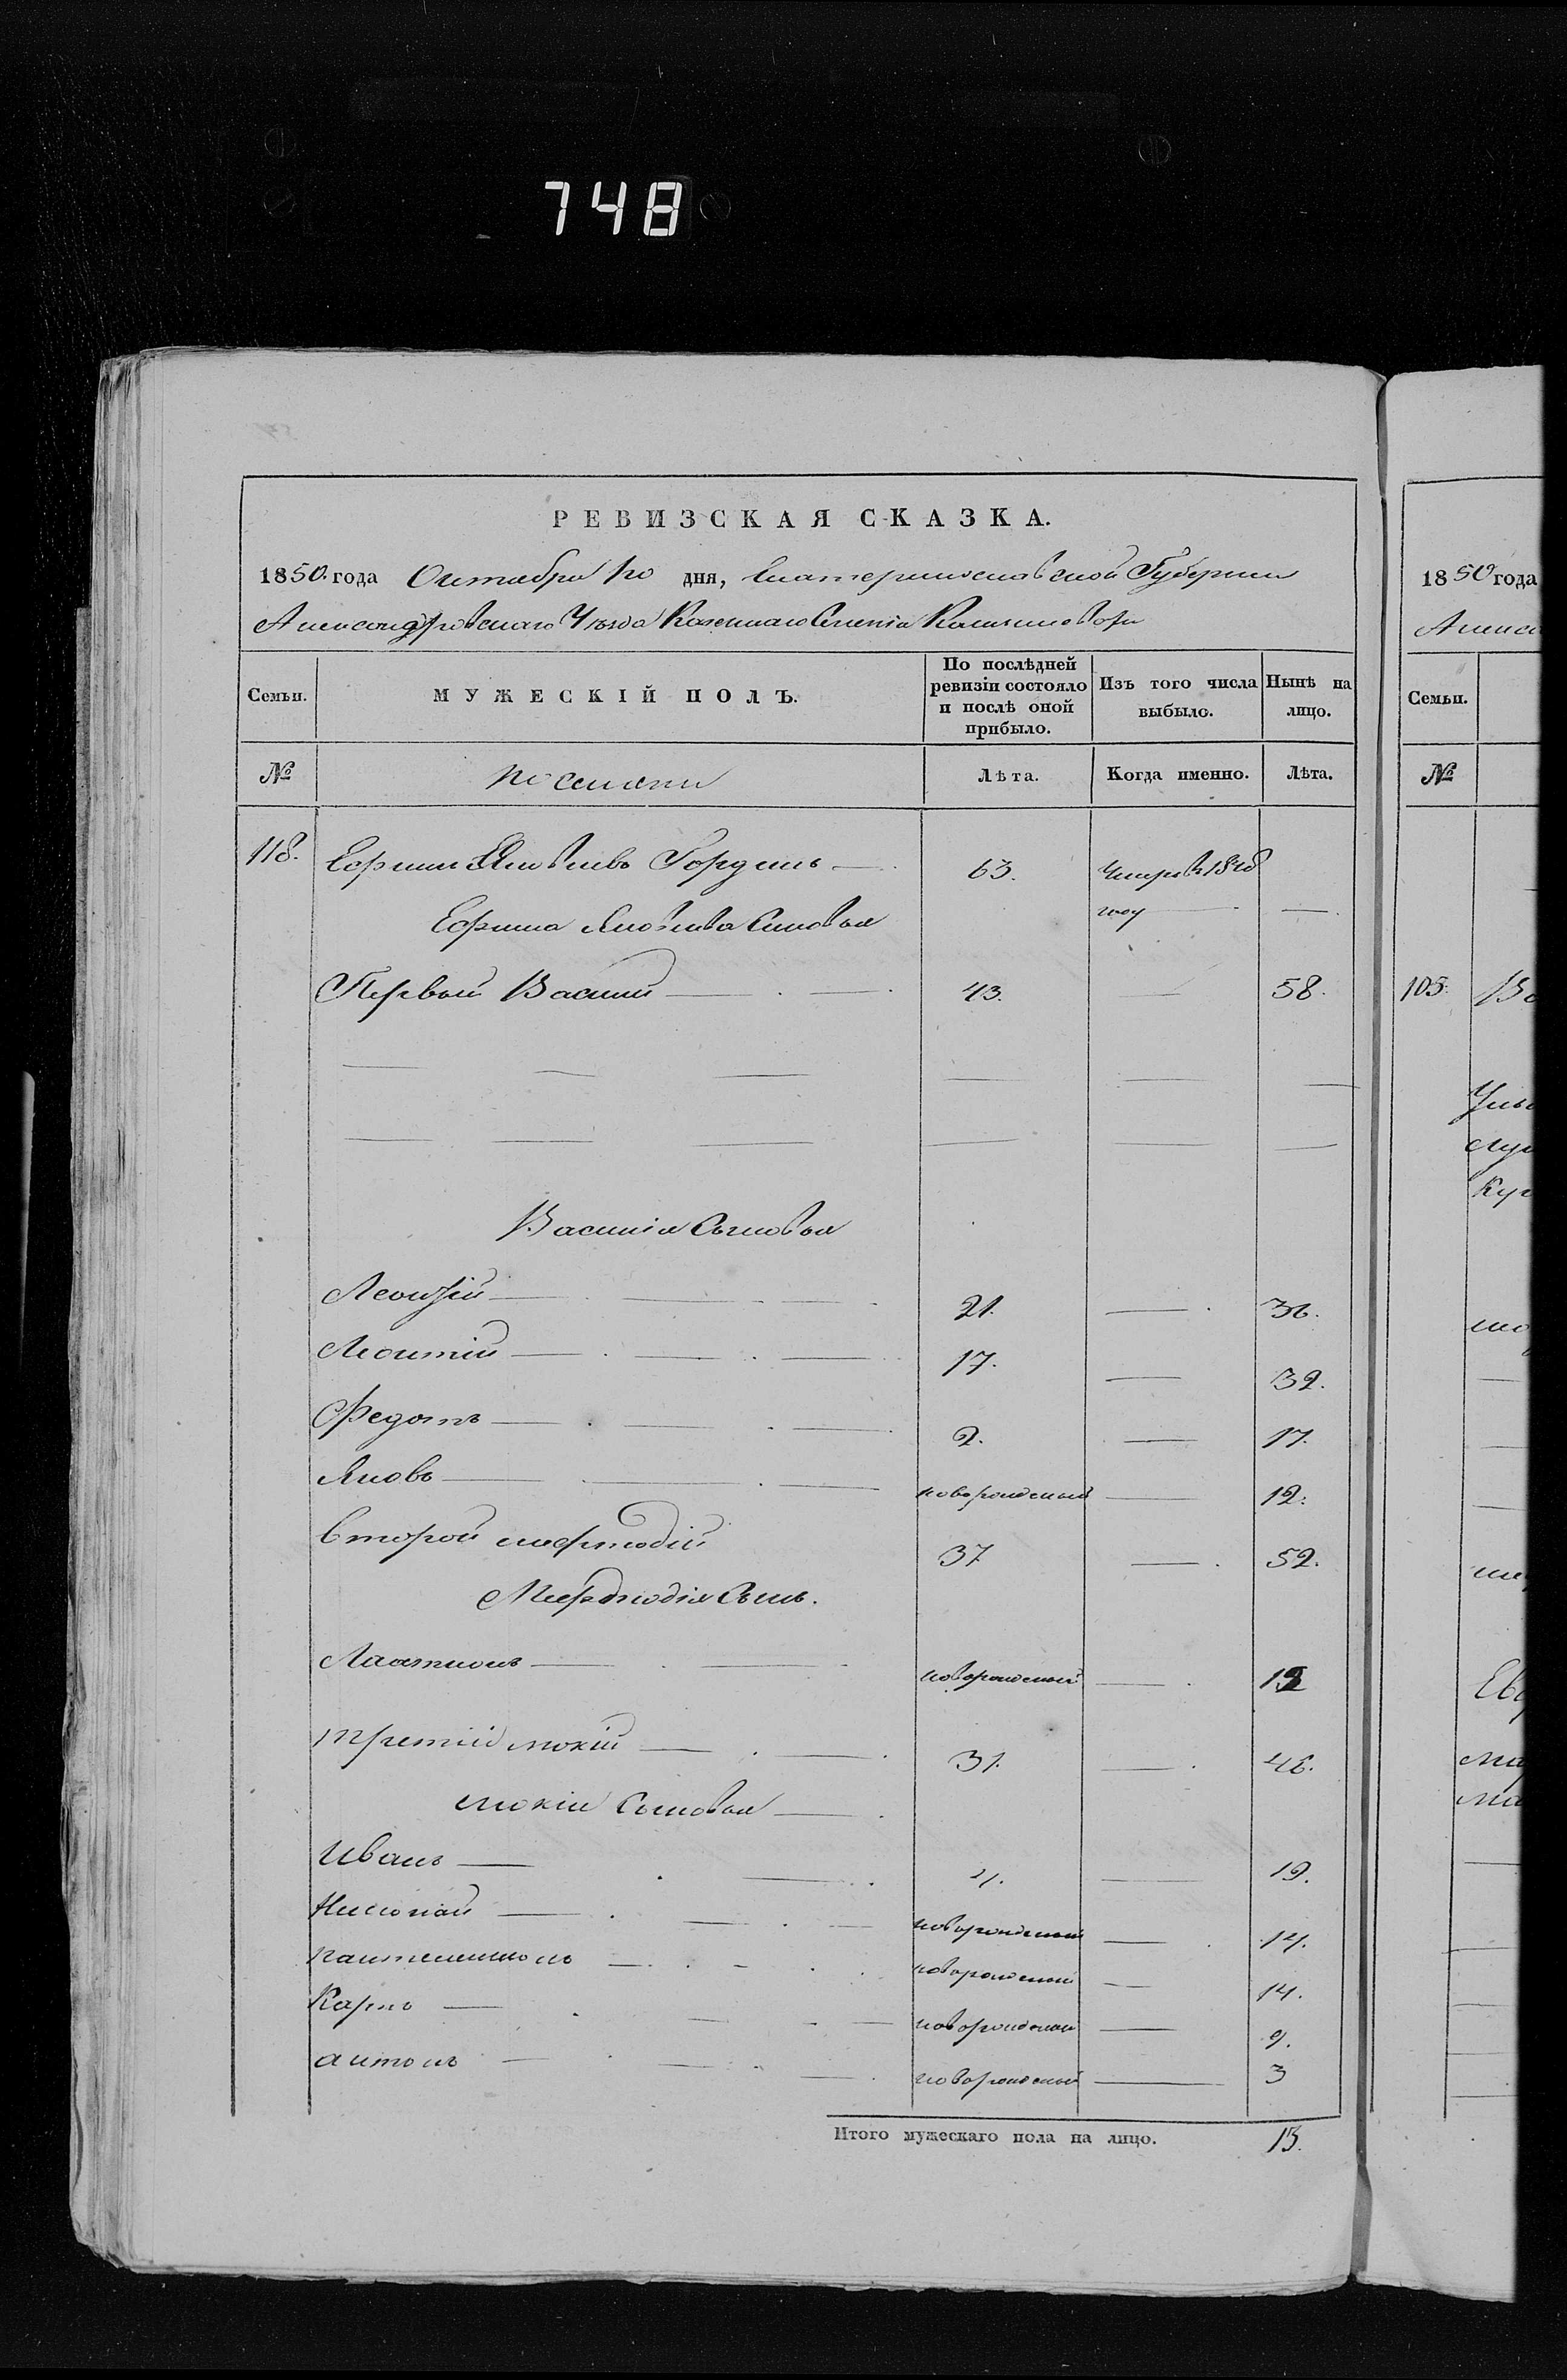 748
РЕВИЗСКАЯ СКАЗКА.
1850. года Октября 10 дня, Екатеринославской Губернии
Александровскаго Уѣзда Казеннаго Селенія
Семьи. МУЖЕСКІЙ ПОЛЪ. По послѣдней ревизіи состояло и послѣ оной прибыло. Изъ того числа выбыло. Нынѣ на лицо.
№ Поселяни Лѣта. Когда именно. Лѣта.
118. Ефимъ Яковлевъ 63. Умеръ в 1848
году
Ефима Яковлева Сыновья
Первый Василий 43. 58.
Василія Сыновья
21. 36.
Леонтій 17. 32.
Федотъ 2. 17.
Яковъ новорожденный 12.
Второй Мефтодій 37 52.
Мефтодія Сынъ.
новорожденный 12
Третій Мокій 31. 46.
Мокія Сыновья
Иванъ 4. 19.
Николай новорожденный 14.
Пантелемонъ новорожденный 14.
Карпъ новорожденный 9.
Антонъ новорожденный 3
Итого мужескаго пола на лицо. 13.
1850 года
Алекса
Семьи.
№
105.